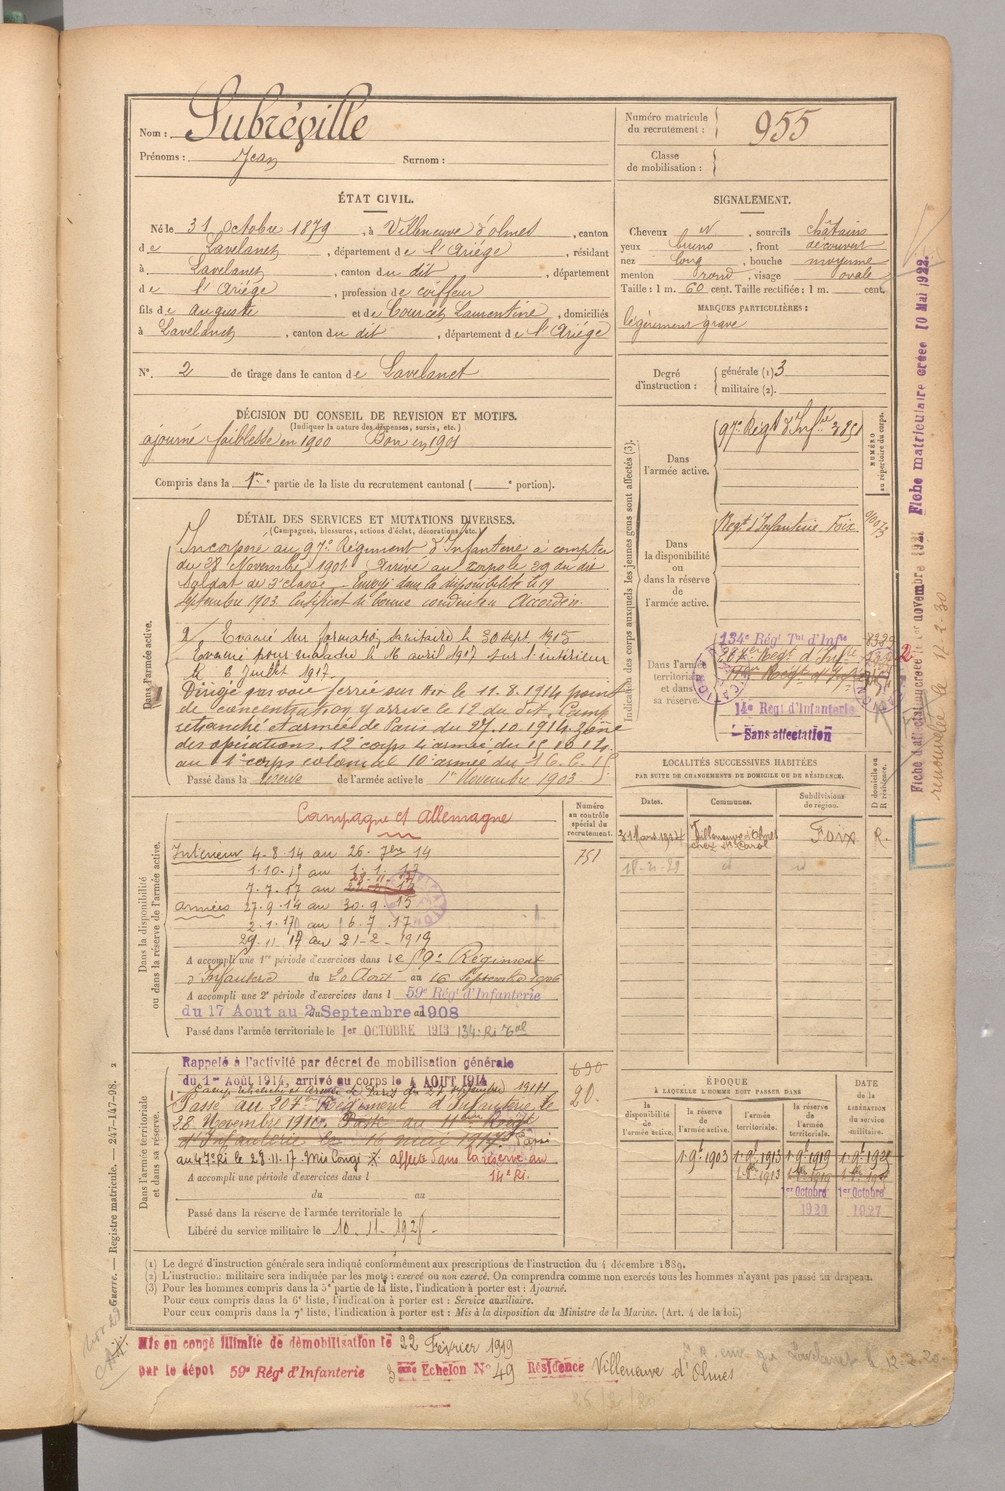 Nom : Subréville
Prénoms : Jean Surnom :
Numéro matricule du recrutement : 955
Classe de mobilisation :
ÉTAT CIVIL.
Né le 31 octobre 1879, à Villeneuve d'olmes, canton
de Lavelanet, département de l'Ariége, résidant
à Lavelanet, canton du dit, département
de l'Ariége, profession de coiffeur
fils de Auguste et de Courcet Laurentine, domiciliés
à Lavelanet, canton du dit, département de l'Ariége
N°. 2 de tirage dans le canton de Lavelanet
SIGNALEMENT.
Cheveux N, sourcils châtains
yeux bruns, front découvert
nez long, bouche moyenne
menton rond, visage ovale
Taille : 1 m. 60 cent. Taille rectifiée : 1 m. cent.
MARQUES PARTICULIÈRES :
légèrement gravé
Degré d'instruction : générale (1) 3
militaire (2).
DÉCISION DU CONSEIL DE REVISION ET MOTIFS.
(Indiquer la nature des dispenses, sursis, etc.)
ajourné faiblesse en 1900 Bon en 1901
Compris dans la 1re partie de la liste du recrutement cantonal ( e portion).
DÉTAIL DES SERVICES ET MUTATIONS DIVERSES.
(Campagnes, blessures, actions d'éclat, décorations, etc.)
Dans l'armée active.
Incorporé au 97e Régiment d'Infanterie à compter
du 28 Novembre 1901 Arrivé au corps le 29 du dit
Soldat de 2e classe. Envoyé dans la disponibilité le 19
Septembre 1903. Certificat de bonne conduite Accordé.
Evacué sur formation sanitaire le 30 sept. 1915
Evacué pour maladie le 16 avril 1917 sur l'intérieur
le 6 Juillet 1917
Dirigé par voie ferrée sur le 11.8.1914 point
de concentration y arrive le 12 du dit. Camp
retranché et armée de Paris du 27.10.1914 zone
des opérations. 12e corps 4e armée du
au 1er corps colonial 10e armée du
Passé dans la réserve de l'armée active le 1er Novembre 1903
Indication des corps auxquels les jeunes gens sont affectés (3).
Dans l'armée active. 97e Régt d'Infie 3851
NUMÉRO au répertoire du corps.
Dans la disponibilité ou dans la réserve de l'armée active. Régt d'Infanterie Foix
Dans l'armée territoriale et dans sa réserve.
134e Régt Tal d'Infie
14e Régt d'Infanterie
Sans affectation
LOCALITÉS SUCCESSIVES HABITÉES
PAR SUITE DE CHANGEMENTS DE DOMICILE OU DE RÉSIDENCE.
Dates. Communes. Subdivisions de région. D domicile ou R résidence.
Villeneuve d'Olmes Foix R.
chez Mr Carol
Dans la disponibilité ou dans la réserve de l'armée active.
Campagne et Allemagne
Numéro au contrôle spécial du recrutement.
751
Intérieur 4-8-14 au 26-7bre 14
1.10.15 au
7.7.17 au
armées 27.9.14 au 30.9.15
au 6.7.17
29-11 17 au 21-2-1919
A accompli une 1re période d'exercices dans le 59e Régiment
d'Infanterie du 20 Août au 16 Septembre 1906
A accompli une 2e période d'exercices dans l 59e Régt d'Infanterie
du 17 Aout au 2 Septembre 1908
Passé dans l'armée territoriale le 1er OCTOBRE 1913 134e Ri Tal
Dans l'armée territoriale et dans sa réserve.
Rappelé à l'activité par décret de mobilisation générale
du 1er Août 1914, arrivé au corps le 4 AOUT 1914
Passé au 207e Régiment d'Infanterie le
28 Novembre Passé au 11e Régt
d'Infanterie le 16 mai 1917. Passé
au 47e Ri le 29.11.17. Mis Congé affecté dans la réserve au
14e Ri.
A accompli une période d'exercices dans l
du au
Passé dans la réserve de l'armée territoriale le
Libéré du service militaire le 10.11.1928.
690
20.
ÉPOQUE
À LAQUELLE L'HOMME DOIT PASSER DANS
la disponibilité de l'armée active. la réserve de l'armée active. l'armée territoriale. la réserve de l'armée territoriale.
DATE DE LA LIBÉRATION du service militaire.
1.9e.1903 1.9e.1913 1.9e.1919
1er Octobre 1er Octobre
1920 1927
(1) Le degré d'instruction générale sera indiqué conformément aux prescriptions de l'instruction du 4 décembre 1889.
(2) L'instruction militaire sera indiquée par les mots : exercé ou non exercé. On comprendra comme non exercés tous les hommes n'ayant pas passé au drapeau.
(3) Pour les hommes compris dans la 5e partie de la liste, l'indication à porter est : Ajourné.
Pour ceux compris dans la 6e liste, l'indication à porter est : Service auxiliaire.
Pour ceux compris dans la 7e liste, l'indication à porter est : Mis à la disposition du Ministre de la Marine. (Art. 4 de la loi.)
Mis en congé illimité de démobilisation le 22 Février 1919
par le dépôt 59e Régt d'Infanterie 3ème Echelon N° 49 Résidence Villeneuve d'Olmes
Guerre. — Registre matricule. — 247-147-98. 2
Fiche matriculaire créée 10 Mai 1922.
renouvelée le 17.2.30